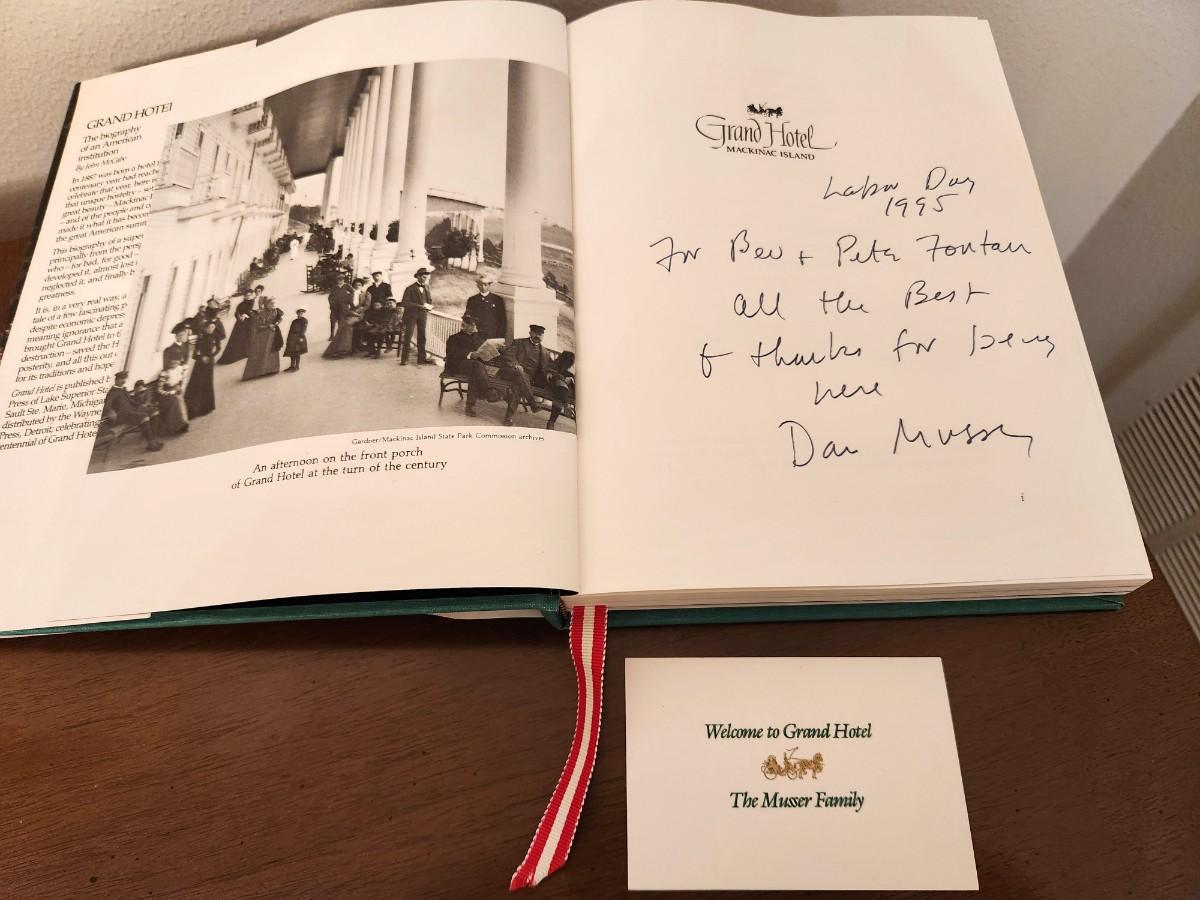 GRAND HOTEL
The biography
of an American
institution
By John McCabe
In 1887 was born a hotel
centenary year had reache
celebrate that year, here is
that unique hostelry – set
great beauty – Mackinac I
– and of the people and o
made it what it has becom
the great American summ
This biography of a super
principally from the persp
who – for bad, for good –
developed it, almost lost i
neglected it, and finally b
greatness.
It is, in a very real way, a
tale of a few fascinating p
despite economic depress
meaning ignorance that a
brought Grand Hotel to t
destruction – saved the H
posterity, and all this out
for its traditions and hope
Grand Hotel is published b
Press of Lake Superior Sta
Sault Ste. Marie, Michigan
distributed by the Wayne
Press, Detroit; celebrating
entennial of Grand Hote
Gardner/Mackinac Island State Park Commission archives
An afternoon on the front porch
of Grand Hotel at the turn of the century
Grand Hotel
MACKINAC ISLAND
Labor Day
1995
For Bev + Pete
all the Best
& thanks for being
here
Dan Musser
i
Welcome to Grand Hotel
The Musser Family